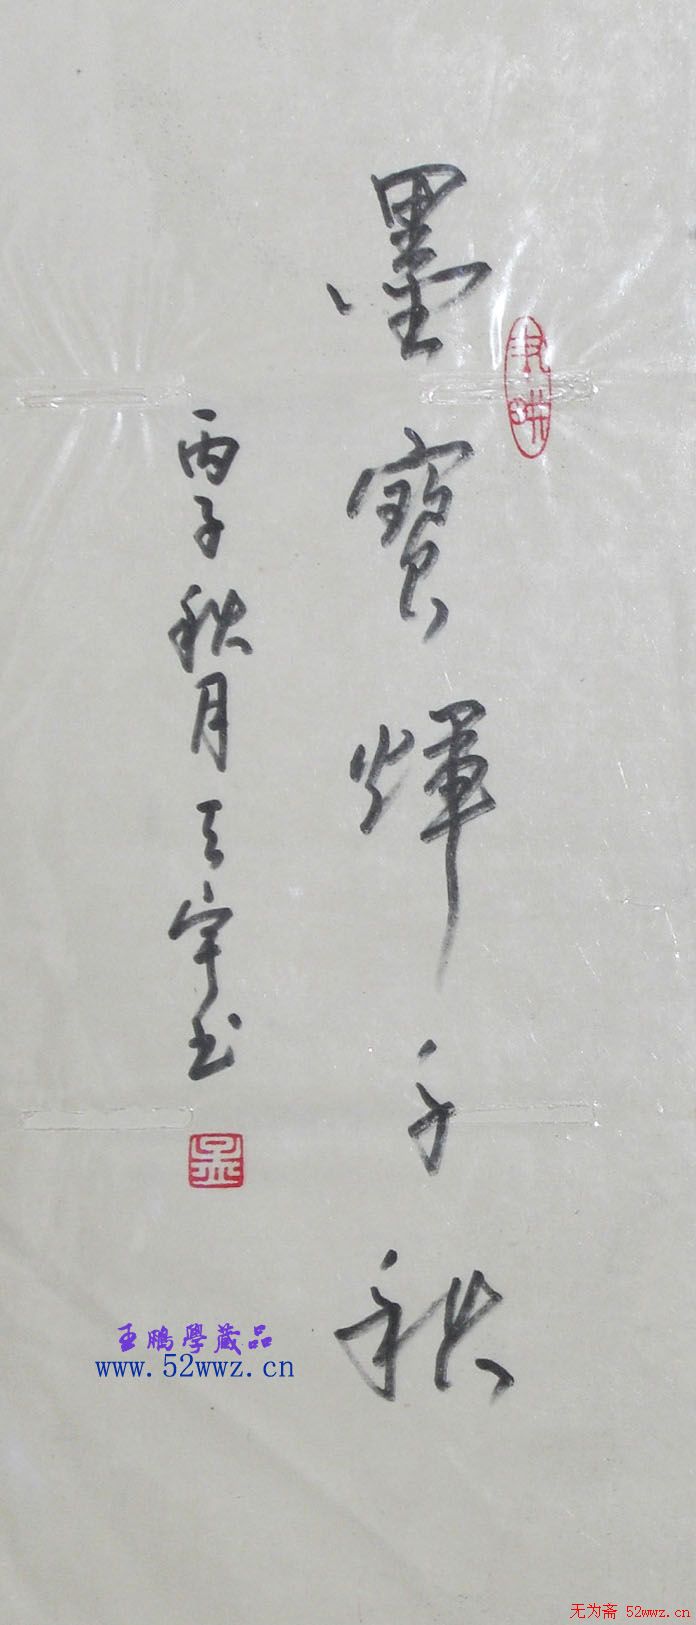 墨寶輝千秋
丙子秋月天宇书
王鵬學藏品
www.52wwz.cn
无为斋 52wwz.cn